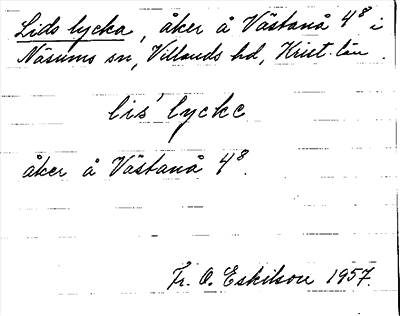 Lids lycka, åker å Västanå 4⁸ i
Näsums sn, Villands hd, Krist. län.
lis' lycke
åker å Västanå 4⁸.
Fr. O. Eskilson 1957.